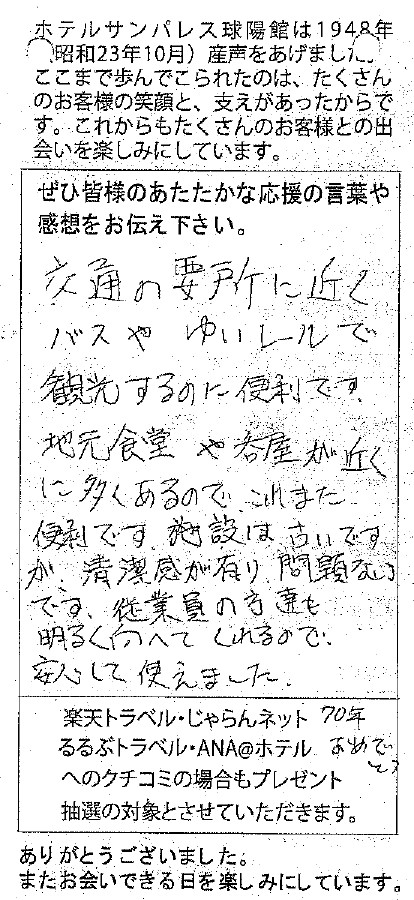 ホテルサンパレス球陽館は1948年
(昭和23年10月）産声をあげました。
ここまで歩んでこられたのは、たくさん
のお客様の笑顔と、支えがあったからで
す。これからもたくさんのお客様との出
会いを楽しみにしています。
ぜひ皆様のあたたかな応援の言葉や
感想をお伝え下さい。
交通の要所に近く
バスや ゆいレールで
観光するのに便利です
地元食堂 や居 が近く
に多くあるので、これまた
便利です、施設は古いです
が、清潔感が有り、問題ない
です、従業員の方達も
明るく向へてくれるので、
安心して使えました、
楽天トラベル・じゃらんネット 70年
るるぶトラベル・ANA@ホテル おめでとう
へのクチコミの場合もプレゼント
抽選の対象とさせていただきます。
ありがとうございました。
またお会いできる日を楽しみにしています。